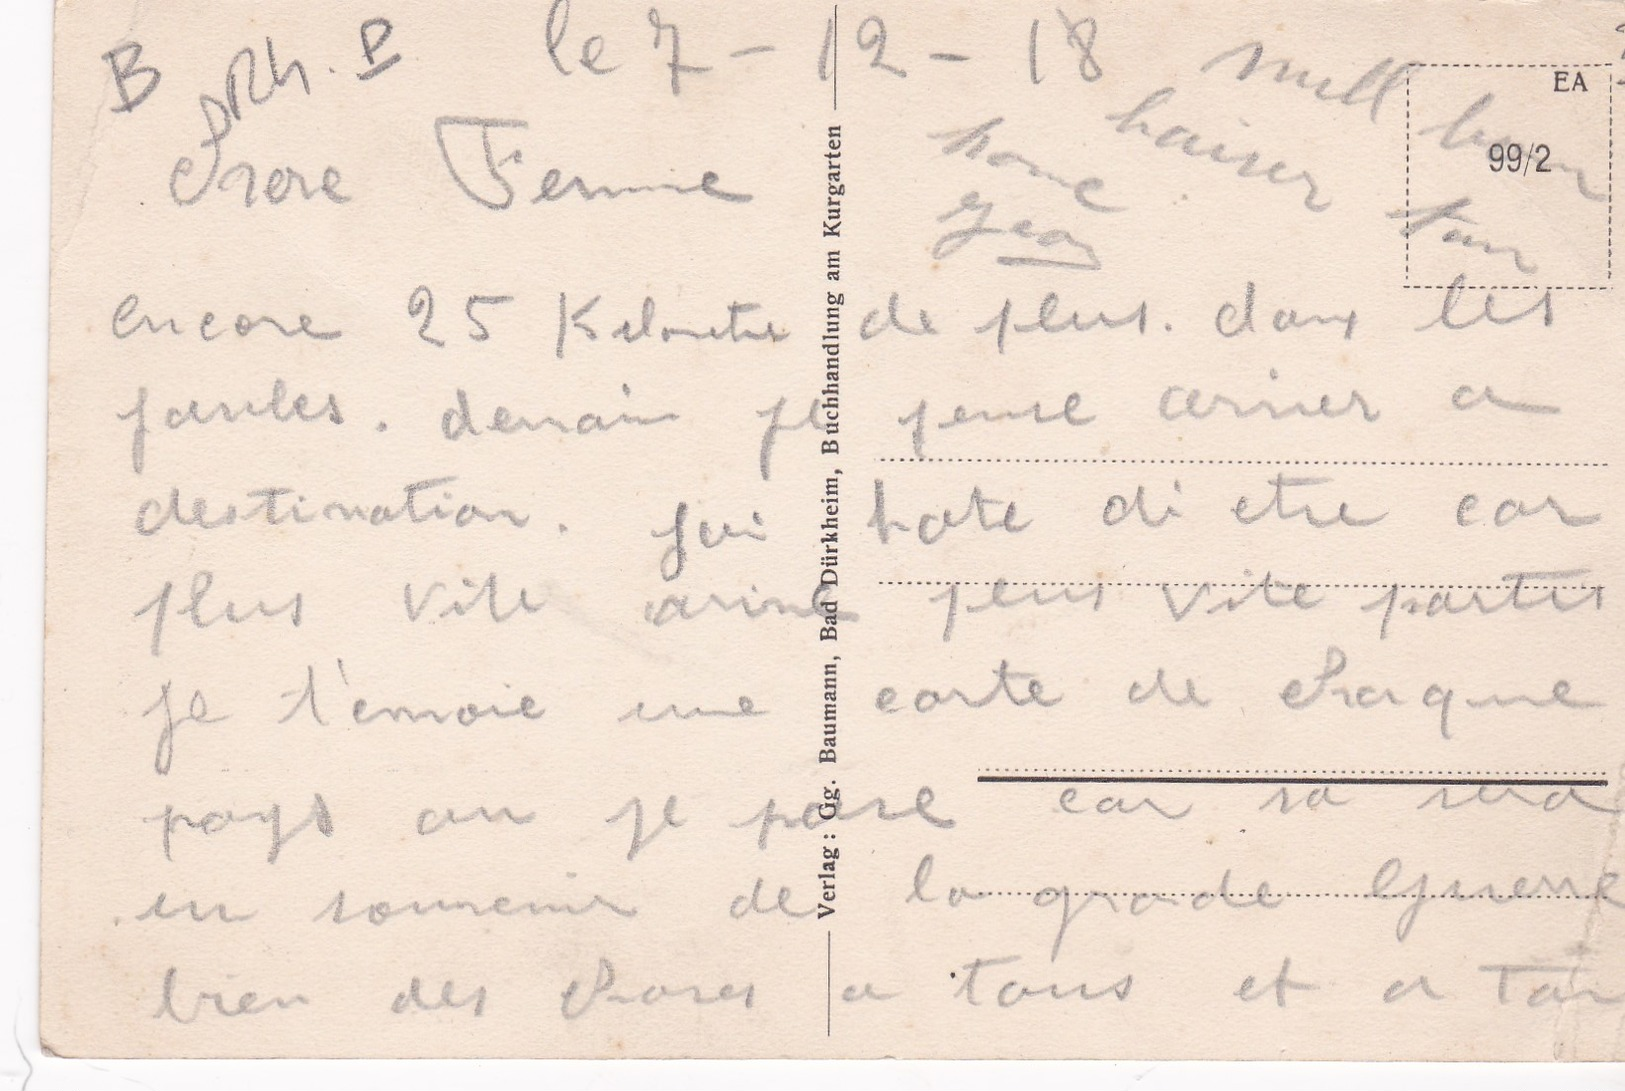 B Rh. P le 7-12-18
Chere Femme
encore 25 Kilometre de plus. dans les
jambes. demain je pense arriver a
destination. jai hate di etre car
plus vite arrivé plus vite partis
je t'envoie une carte de chaque
pays ou je passe car sa sera
un souvenir de la grande Guerre
bien des choses a tous et a toi
mill bon
baiser ton
home
Jean
EA
99/2
Verlag: Gg. Baumann, Bad Dürkheim, Buchhandlung am Kurgarten